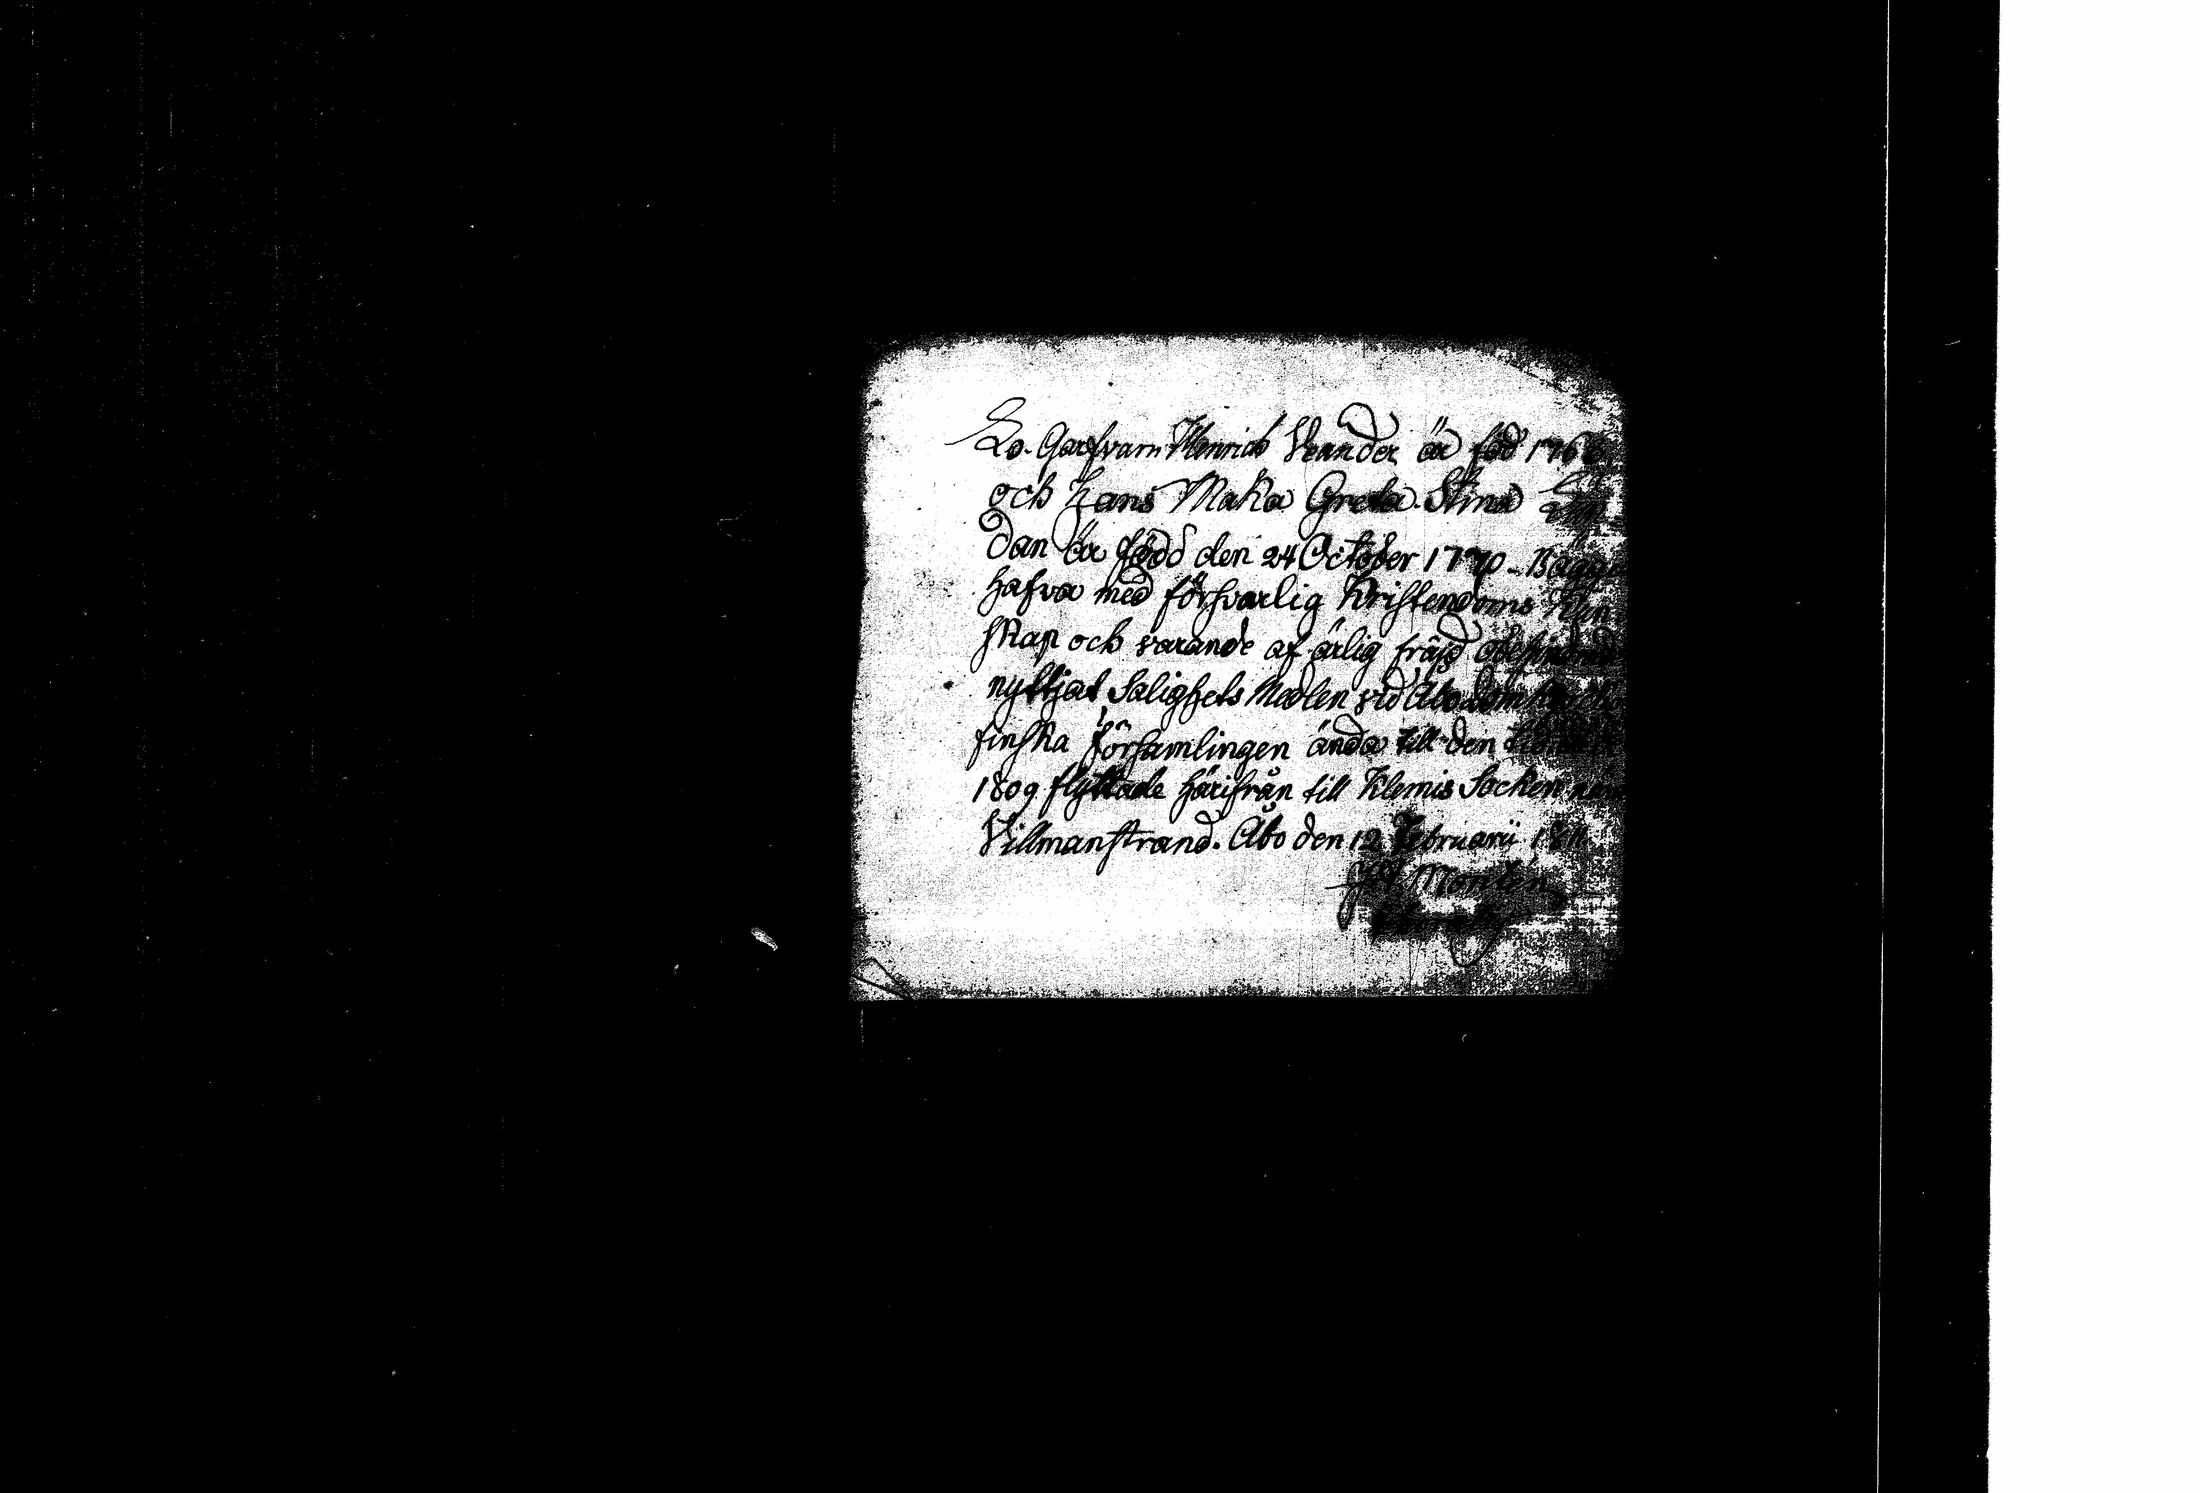 Lo. Garfvarn Henrich Vrander är föd 176
och hans Maka Greta Stina
dan är född den 24 October 1770 - Bägge
hafva med försvarlig Kristendoms Kän
skap och varande af ärlig fräjd obehindrad
nyttjat Salighets Medlen vid Åbo Domkyrko
finska församlingen ända till den
1809 flyttade härifrån till Klemis Socken
Villmanstrand. Åbo den 12 Februarii 1811.
Montin